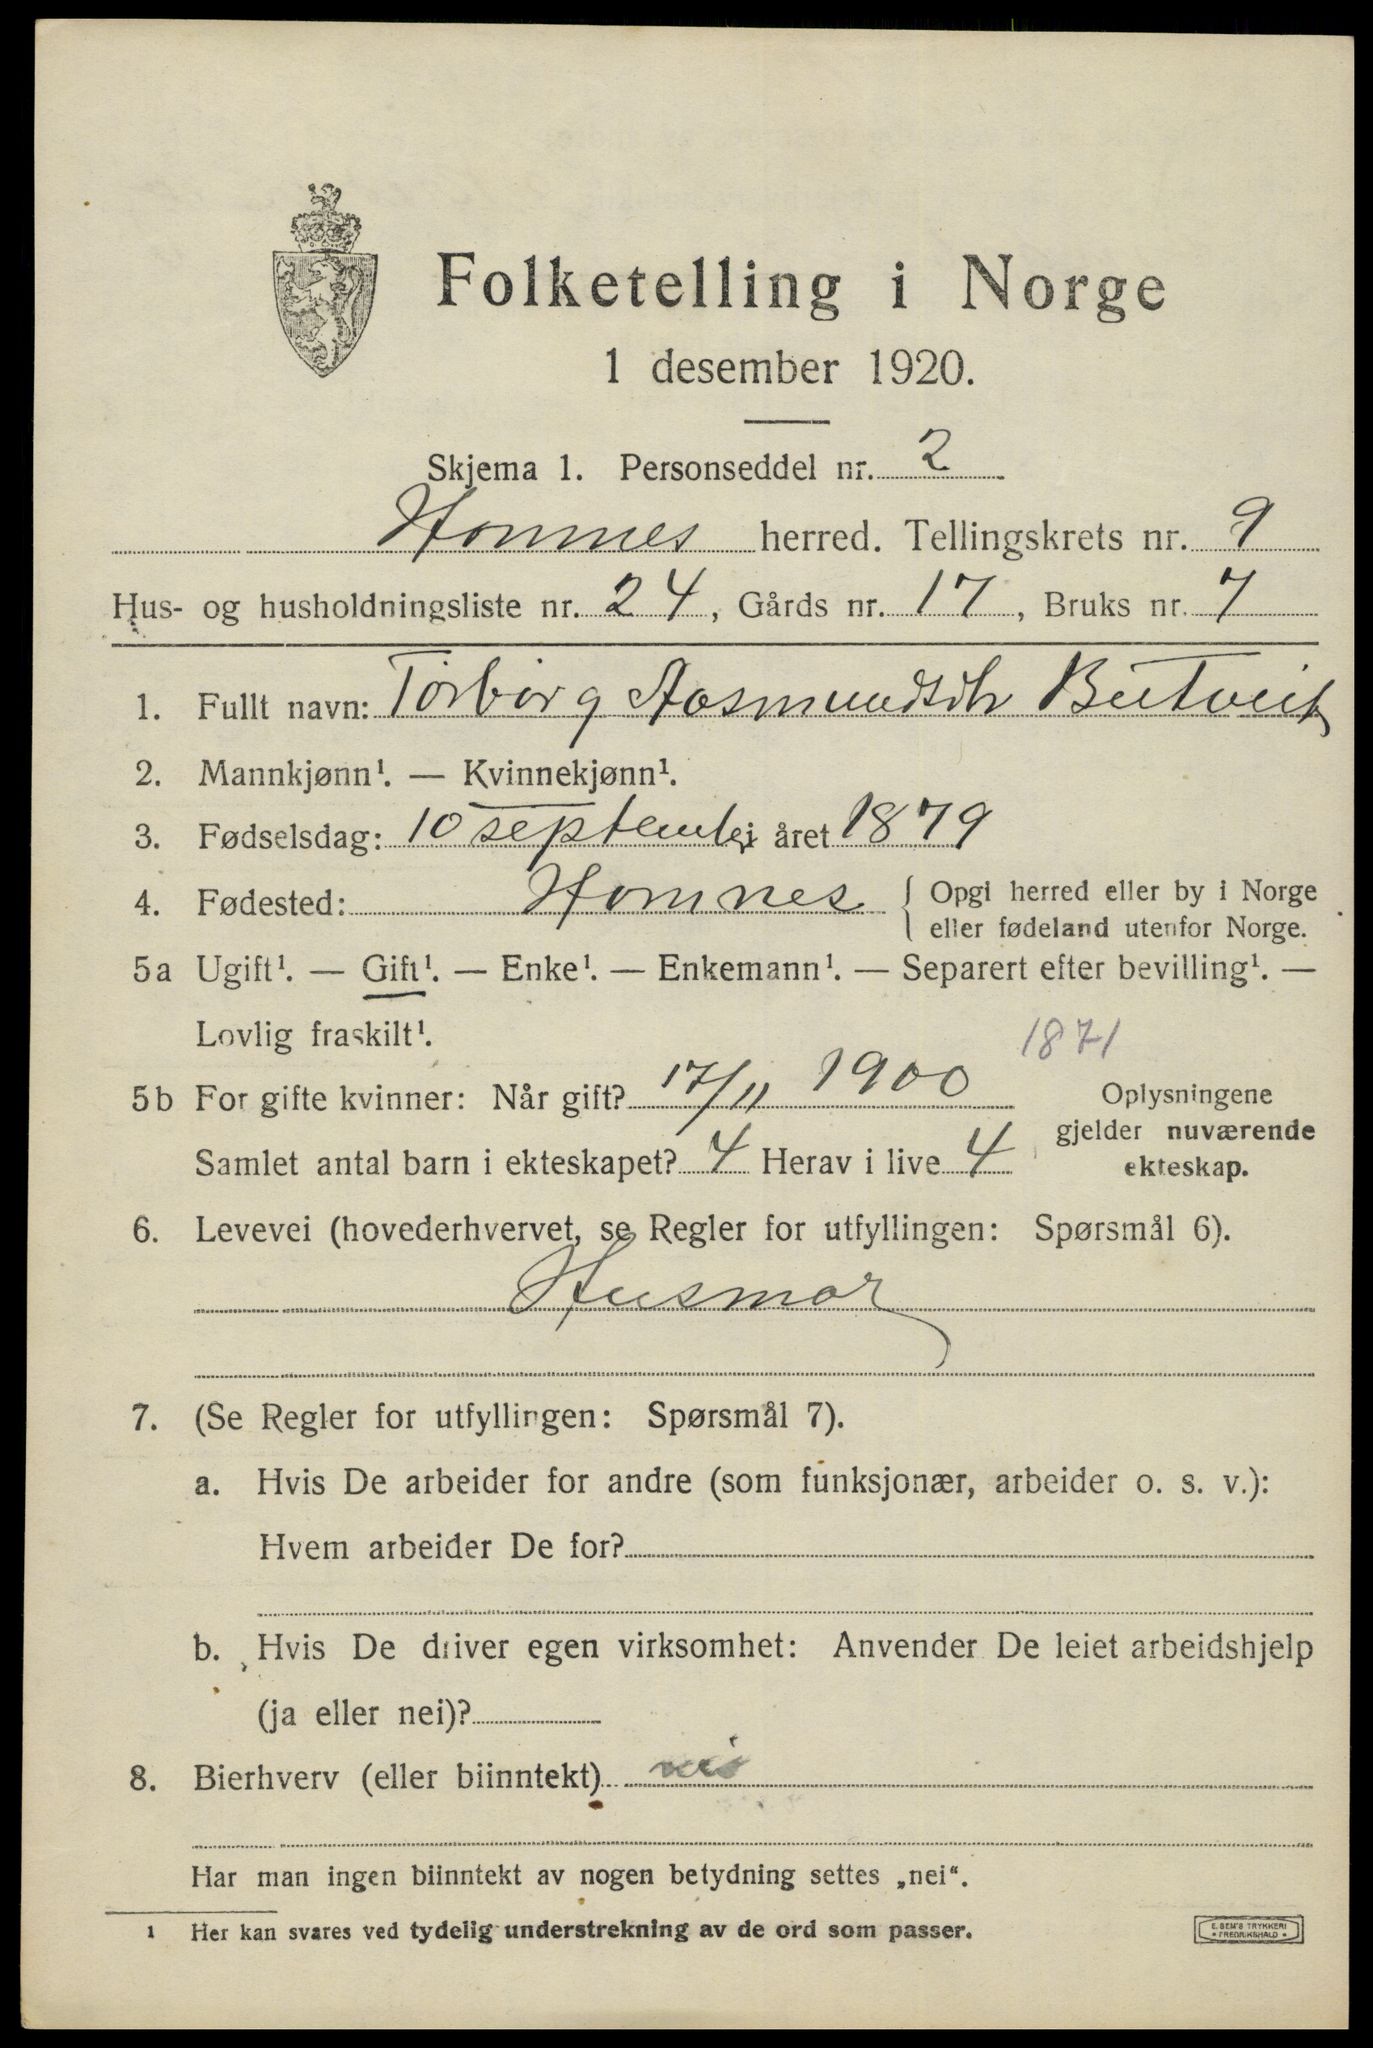 Folketelling i Norge
1 desember 1920.
Skjema 1. Personseddel nr. 2
Homnes herred. Tellingskrets nr. 9
Hus- og husholdningsliste nr. 24, Gårds nr. 17, Bruks nr. 7
1. Fullt navn: Torborg Aasmundsdtr Butveit
2. Mannkjønn¹. — Kvinnekjønn¹.
3. Fødselsdag: 10 september i året 1879
4. Fødested: Homnes { Opgi herred eller by i Norge
eller fødeland utenfor Norge.
5a Ugift¹. — Gift¹. — Enke¹. — Enkemann¹. — Separert efter bevilling¹. —
Lovlig fraskilt¹.
1871
5b For gifte kvinner: Når gift? 17/11 1900 Oplysningene
gjelder nuværende
Samlet antal barn i ekteskapet? 4 Herav i live 4 ekteskap.
6. Levevei (hovederhvervet, se Regler for utfyllingen: Spørsmål 6).
Husmor
7. (Se Regler for utfyllingen: Spørsmål 7).
a. Hvis De arbeider for andre (som funksjonær, arbeider o. s. v.):
Hvem arbeider De for?
b. Hvis De driver egen virksomhet: Anvender De leiet arbeidshjelp
(ja eller nei)?
8. Bierhverv (eller biinntekt) nei
Har man ingen biinntekt av nogen betydning settes „nei“.
1 Her kan svares ved tydelig understrekning av de ord som passer.
E. SEM'S TRYKKERI
* FREDRIKSHALD *